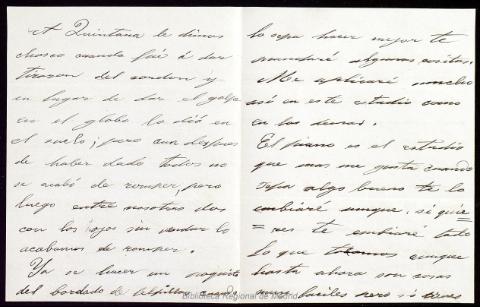 A Quintana le dimos
chasco cuando fué á dar
tiraron del cordon y
en lugar de dar el golpe
en el globo lo dió en
el suelo; pero aun despues
de haber dado todos no
se acabó de romper, pero
luego entre nosotras dos
con los ojos sin vendar lo
acabamos de romper.
Ya se hacer un poquito
del bordado de
lo sepa hacer mejor te
mandaré algunas cositas.
Me aplicaré mucho
así en este estudio como
en los demas.
El piano es el estudio
que mas me gusta cuando
sepa algo bueno te lo
enviaré aunque, si quie=
=res te enviaré todo
lo que tocamos aunque
hasta ahora son cosas
muy faciles pero si tienes
Biblioteca Regional de Madrid